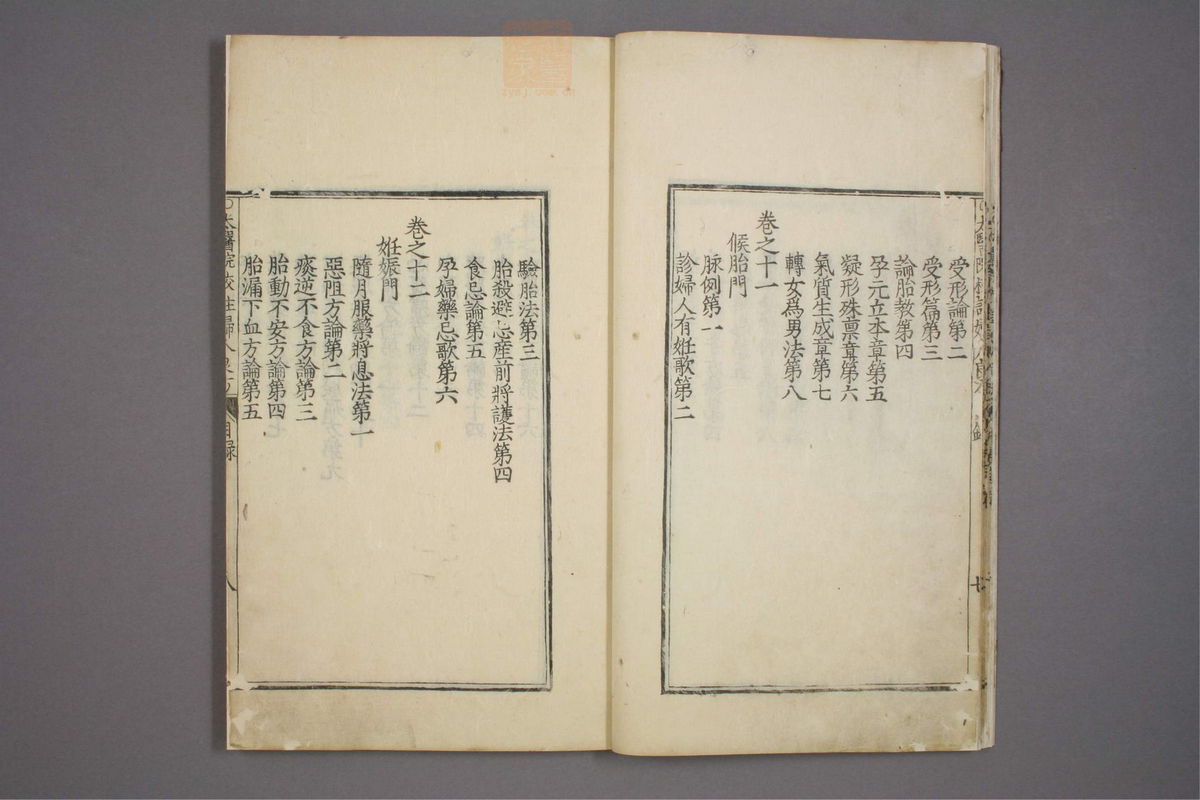 受形論第二
受形篇第三
論胎教第四
孕元立本章第五
凝形殊禀章第六
氣質生成章第七
轉女爲男法第八
卷之十一
候胎門
脉例第一
診婦人有姙歌第二
驗胎法第三
胎殺避忌産前將護法第四
食忌論第五
孕婦藥忌歌第六
卷之十二
姙娠門
隨月服藥將息法第一
惡阻方論第二
痰逆不食方論第三
胎動不安方論第四
胎漏下血方論第五
太醫院校註婦人良方
目録
八